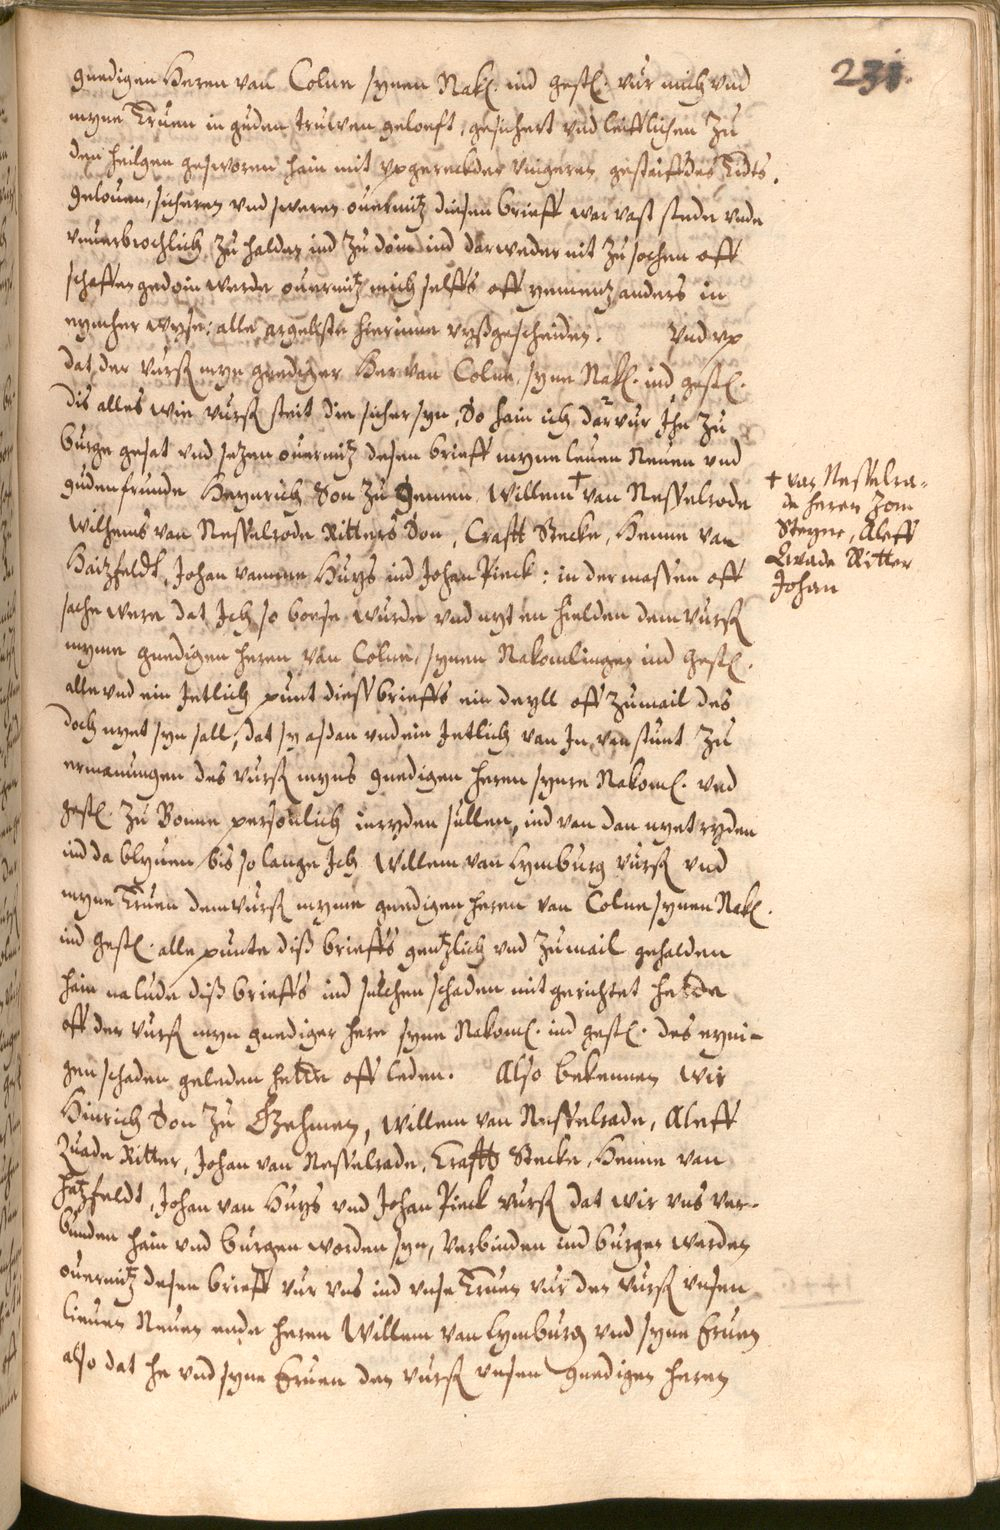 231.
gnedigen Heren van Colne synen Nak. ind gestl. vur mich vnd
myne Eruen in guden truwen geloeft, gesichert vnd leifflichen zu
den heilgen gesworen hain mit vpgereckder vingeren gestaiffdes Eidts.
gelouen, sicheren vnd sweren ouermitz diesen brieff war vast stede vnde
vnuerbrochlich zu halden ind zu doin ind darweder nit zu sochen off
schaffen gedoin werde ouermitz mich selffs off yemantz anders in
eyncher wyse: alle argelyste hierinne vyßgescheiden. Vnd vp
dat der vurß myn gnediger Her van Colne, syne Nak. ind gestl.
dis alles wie vurß steit die sicher syn, So hain ich darvur Jhn zu
burge gesat vnd setzen ouermitz desen brieff myne leuen Neuen vnd
guden frunde Heynrich Son zu Gemen, Willem † van Nesselrode
Wilhems van Nesselrode Ritters Son, Crafft Stecke, Henne van
Haitzfeldt, Johan vamme Huys ind Johan Pieck: in dermassen off
sache were dat Ich so boese wurde vnd nyt en hielden dem vurß
myme gnedigen heren van Colne, synen Nakomlingen ind gestl.
alle vnd ein Jetlich punt dieß brieffs ein deyll off zumail des
doch nyet syn sall, dat sy asdan vnd ein Jetlich van Jn van stunt zu
ermanungen des vurß myns gnedigen heren synre Nakom. vnd
gestl. zu Bonne personlich inryden sullen, ind van dan nyet ryden
ind da blyuen bis so lange Ich Willem van Lymburg vurß vnd
myne Eruen dem vurß myme gnedigen heren van Colne synen Nak.
ind gestl. alle punte diß brieffs gentzlich vnd zumail gehalden
hain na lude diß brieffs ind sulchen schaden mit gerichtet hedde
off der vurß myn gnediger here syne Nakom. ind gestl. des eyni-
gen schaden geleden hedde off leden. Also bekennen wir
Hinrich Son zu Gehmen, Willem van Nesselrade, Aleff
Quade Ritter, Johan van Nesselrade, Crafft Stecke, Henne van
Hatzfeldt, Johan van Huys vnd Johan Pieck vurß dat wir vns ver-
bunden hain vnd burgen worden syn, Verbinden ind burger werden
ouermitz desen brieff vur vns ind vnse Eruen vur den vurß vnsen
lieuen Neuen ende heren Willem van Lymburg vnd syne Eruen
also dat he vnd syne Eruen den vurß vnsen gnedigen heren
† van Nesselra-
de heren zom
Steyne, Aleff
Quade Ritter
Johan